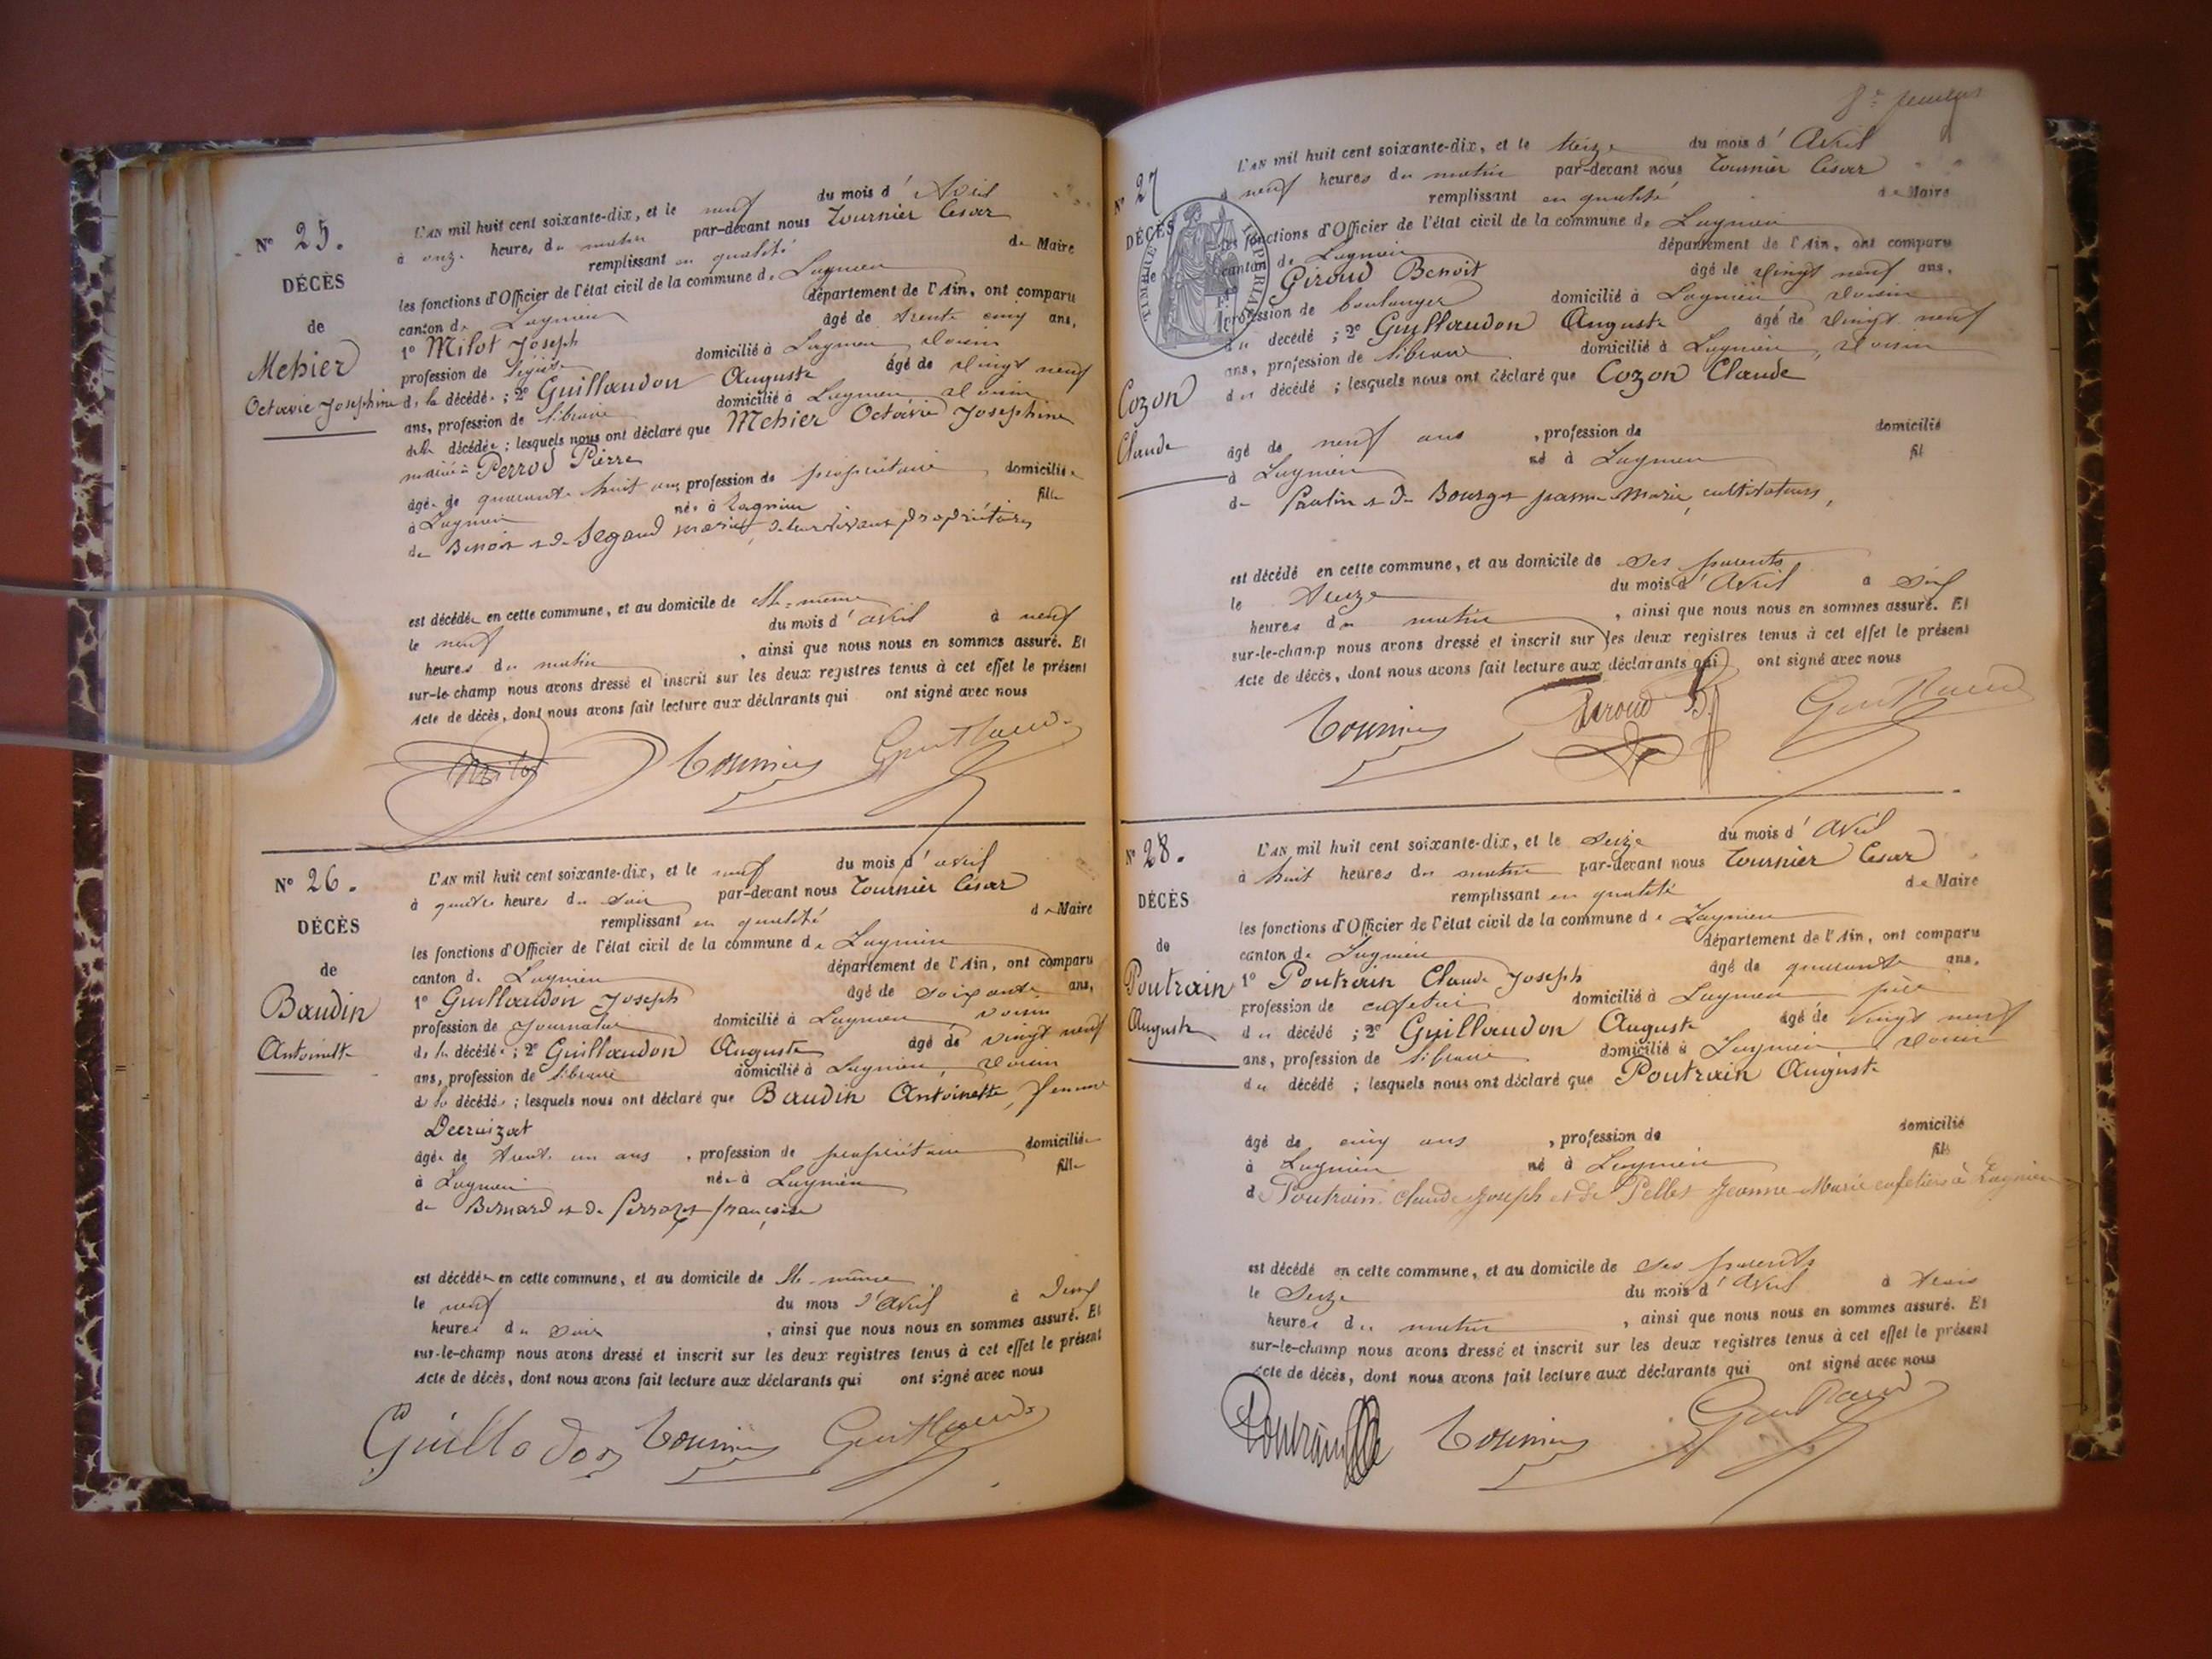 N° 25.
DÉCÈS
de
Mehier
Octavie Josephine
L'AN mil huit cent soixante-dix, et le neuf du mois d'Avril
à onze heures du matin par-devant nous Tournier César
remplissant en qualité de Maire
les fonctions d'Officier de l'état civil de la commune de Lagnieu
canton de Lagnieu département de l'Ain, ont comparu
1° Milot Joseph âgé de trente cinq ans,
profession de domicilié à Lagnieu voisin
de la décédée ; 2° Guillaudon Auguste âgé de vingt neuf
ans, profession de libraire domicilié à Lagnieu, voisin
de la décédée ; lesquels nous ont déclaré que Mehier Octavie Josephine
mariée à Perrod Pierre
âgée de quarante huit ans, profession de propriétaire domiciliée
à Lagnieu née à Lagnieu fille
de Benoit et de Segaud Marie, propriétaires
est décédée en cette commune, et au domicile de elle-même
le neuf du mois d'avril à neuf
heures du matin, ainsi que nous nous en sommes assuré. Et
sur-le-champ nous avons dressé et inscrit sur les deux registres tenus à cet effet le présent
Acte de décès, dont nous avons fait lecture aux déclarants qui ont signé avec nous
Milot Tournier Guillaud
N° 26.
DÉCÈS
de
Baudin
Antoinette
L'AN mil huit cent soixante-dix, et le neuf du mois d'avril
à quatre heures du soir par-devant nous Tournier César
remplissant en qualité de Maire
les fonctions d'Officier de l'état civil de la commune de Lagnieu
canton de Lagnieu département de l'Ain, ont comparu
1° Guillaudon Joseph âgé de soixante ans,
profession de Journalier domicilié à Lagnieu voisin
de la décédée ; 2° Guillaudon Auguste âgé de vingt neuf
ans, profession de libraire domicilié à Lagnieu, voisin
de la décédée ; lesquels nous ont déclaré que Baudin Antoinette, femme
Decruizat
âgée de trente un ans, profession de propriétaire domiciliée
à Lagnieu née à Lagnieu fille
de Bernard et de Perrozet françoise
est décédée en cette commune, et au domicile de elle-même
le neuf du mois d'avril à deux
heures du soir, ainsi que nous nous en sommes assuré. Et
sur-le-champ nous avons dressé et inscrit sur les deux registres tenus à cet effet le présent
Acte de décès, dont nous avons fait lecture aux déclarants qui ont signé avec nous
Guillodon Tournier Guillaud
N° 27
DÉCÈS
de
Cozon
Claude
TIMBRE IMPERIAL
L'AN mil huit cent soixante-dix, et le treize du mois d'Avril
à neuf heures du matin par-devant nous Tournier César
remplissant en qualité de Maire
les fonctions d'Officier de l'état civil de la commune de Lagnieu
canton de Lagnieu département de l'Ain, ont comparu
1° Giroud Benoit âgé de vingt neuf ans,
profession de boulanger domicilié à Lagnieu voisin
du décédé ; 2° Guillaudon Auguste âgé de vingt neuf
ans, profession de libraire domicilié à Lagnieu, voisin
du décédé ; lesquels nous ont déclaré que Cozon Claude
âgé de neuf ans, profession de domicilié
à Lagnieu né à Lagnieu fil
de Paulin et de Bourget Marie, cultivateurs,
est décédé en cette commune, et au domicile de ses parents
le treize du mois d'Avril à
heures du matin, ainsi que nous nous en sommes assuré. Et
sur-le-champ nous avons dressé et inscrit sur les deux registres tenus à cet effet le présent
Acte de décès, dont nous avons fait lecture aux déclarants qui ont signé avec nous
Tournier Giroud B. Guillaud
N° 28.
DÉCÈS
de
Poutrain
Auguste
L'AN mil huit cent soixante-dix, et le seize du mois d'Avril
à huit heures du matin par-devant nous Tournier César
remplissant en qualité de Maire
les fonctions d'Officier de l'état civil de la commune de Lagnieu
canton de Lagnieu département de l'Ain, ont comparu
1° Poutrain Claude Joseph âgé de quarante ans,
profession de cafetier domicilié à Lagnieu père
du décédé ; 2° Guillaudon Auguste âgé de vingt neuf
ans, profession de libraire domicilié à Lagnieu, voisin
du décédé ; lesquels nous ont déclaré que Poutrain Auguste
âgé de cinq ans, profession de domicilié
à Lagnieu né à Lagnieu fils
de Poutrain Claude Joseph et de Pellet Jeanne Marie cafetiers à Lagnieu
est décédé en cette commune, et au domicile de ses parents
le seize du mois d'Avril à trois
heures du matin, ainsi que nous nous en sommes assuré. Et
sur-le-champ nous avons dressé et inscrit sur les deux registres tenus à cet effet le présent
Acte de décès, dont nous avons fait lecture aux déclarants qui ont signé avec nous
Poutrain Tournier Guillaud